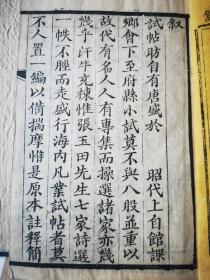 叙
試帖昉自有唐盛於　昭代上自館課
鄉會下至府縣小試莫不與八股並重以
故代有名人人有專集而操選諸家亦幾
幾乎汗牛充棟惟張玉田先生七家詩選
一帙不脛而走盛行海內凡業試帖者莫
不人置一編以備揣摩惟是原本註釋簡